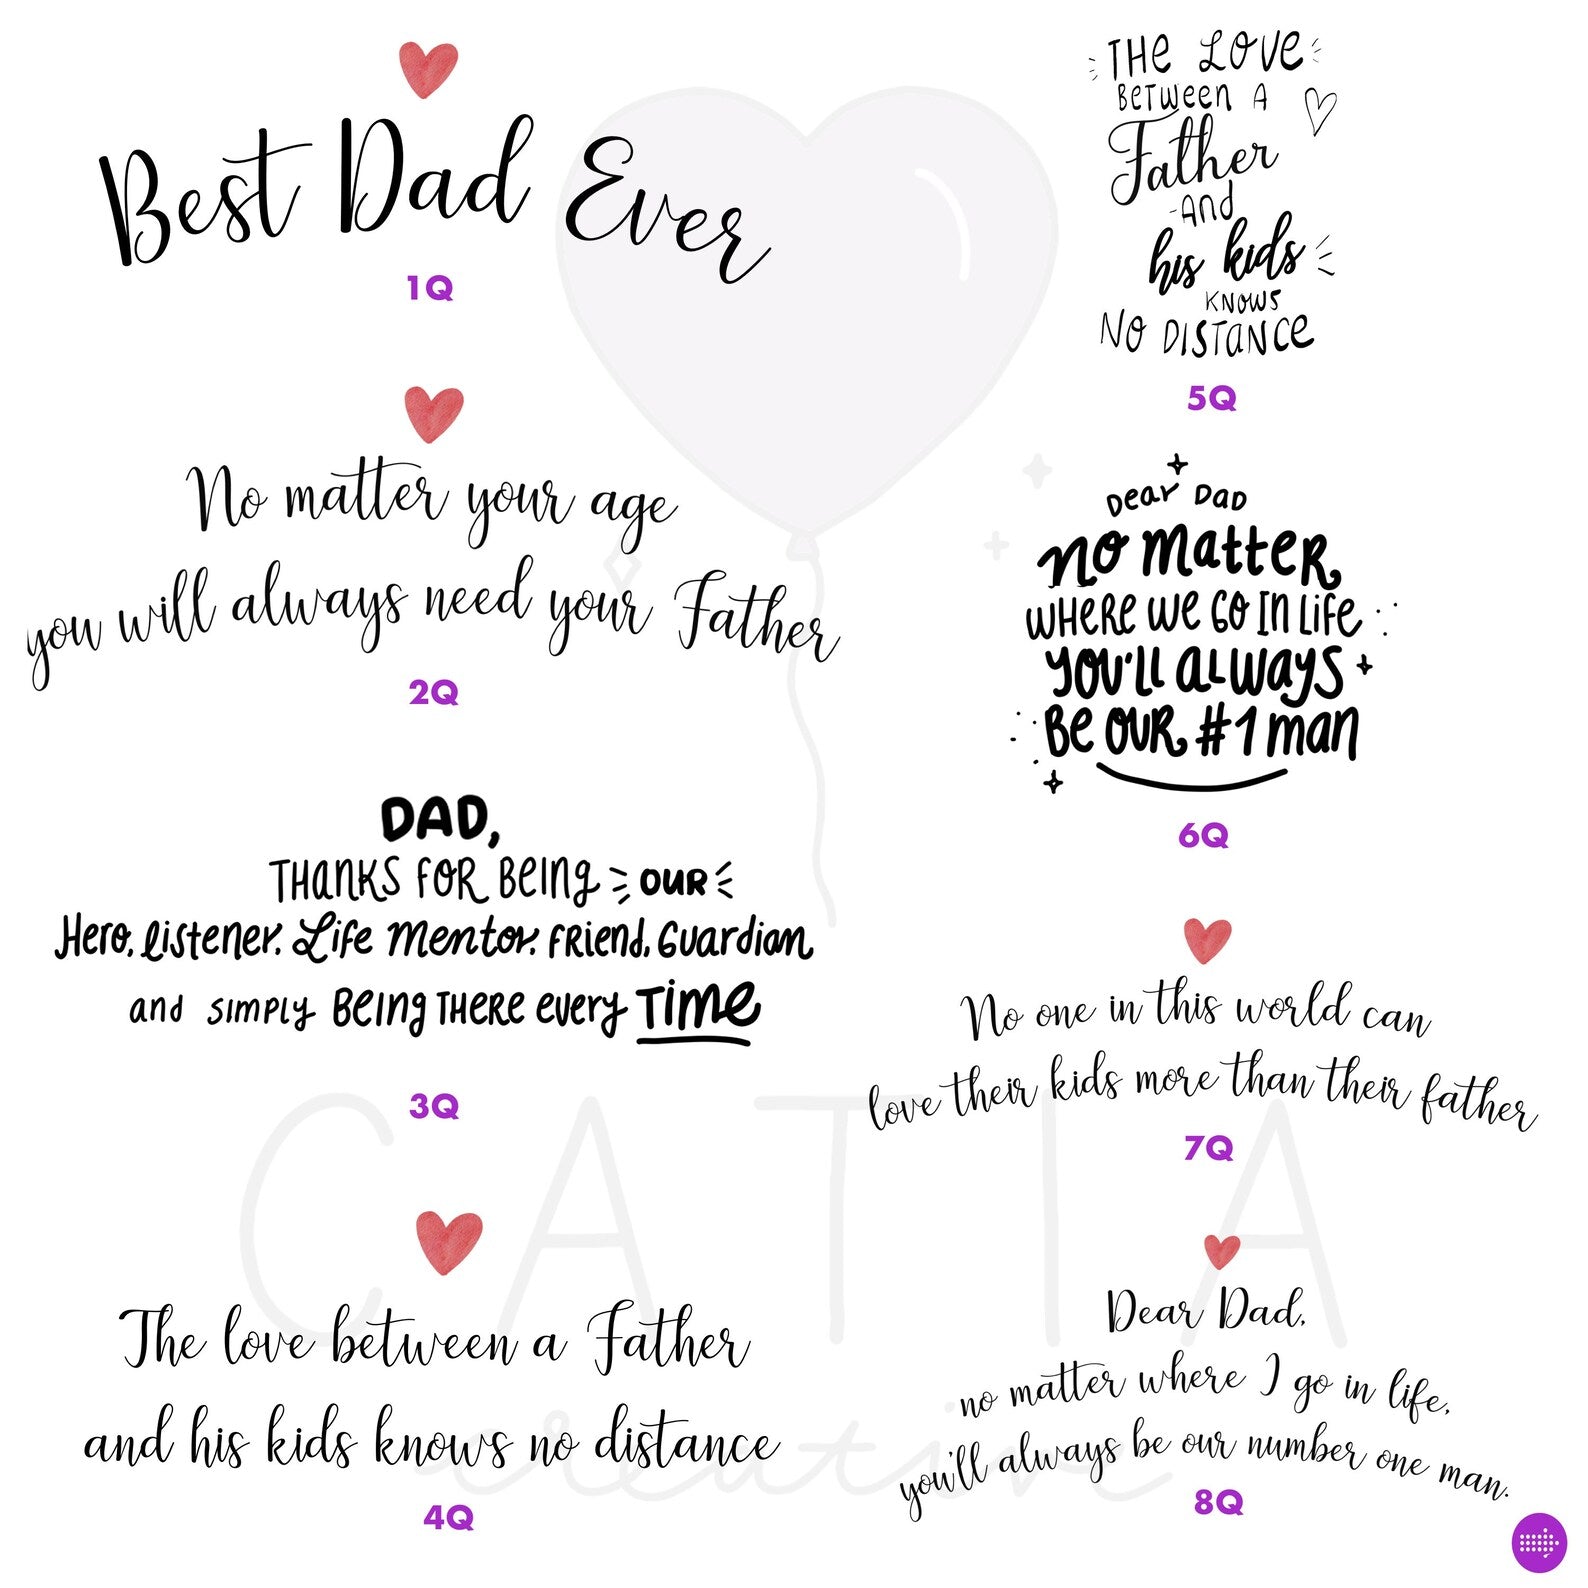 Best Dad Ever
1Q
No matter your age
you will always need your Father
2Q
DAD,
THANKS FOR BEING OUR
Hero, Listener, Life Mentor, FRIEND, Guardian,
and SIMPLY BEING THERE every TIME
3Q
The love between a Father
and his kids knows no distance
4Q
THE LOVE
BETWEEN A
Father
AND
his kids
KNOWS
NO DISTANCE
5Q
Dear Dad
No Matter
WHERE WE GO IN LIFE
YOU'LL ALWAYS
BE OUR #1 man
6Q
No one in this world can
love their kids more than their father
7Q
Dear Dad,
no matter where I go in life,
you'll always be our number one man.
8Q
CATIA
creative